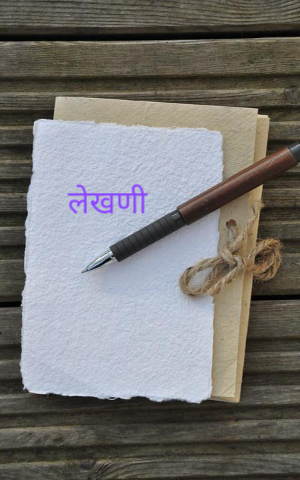 लेखणी